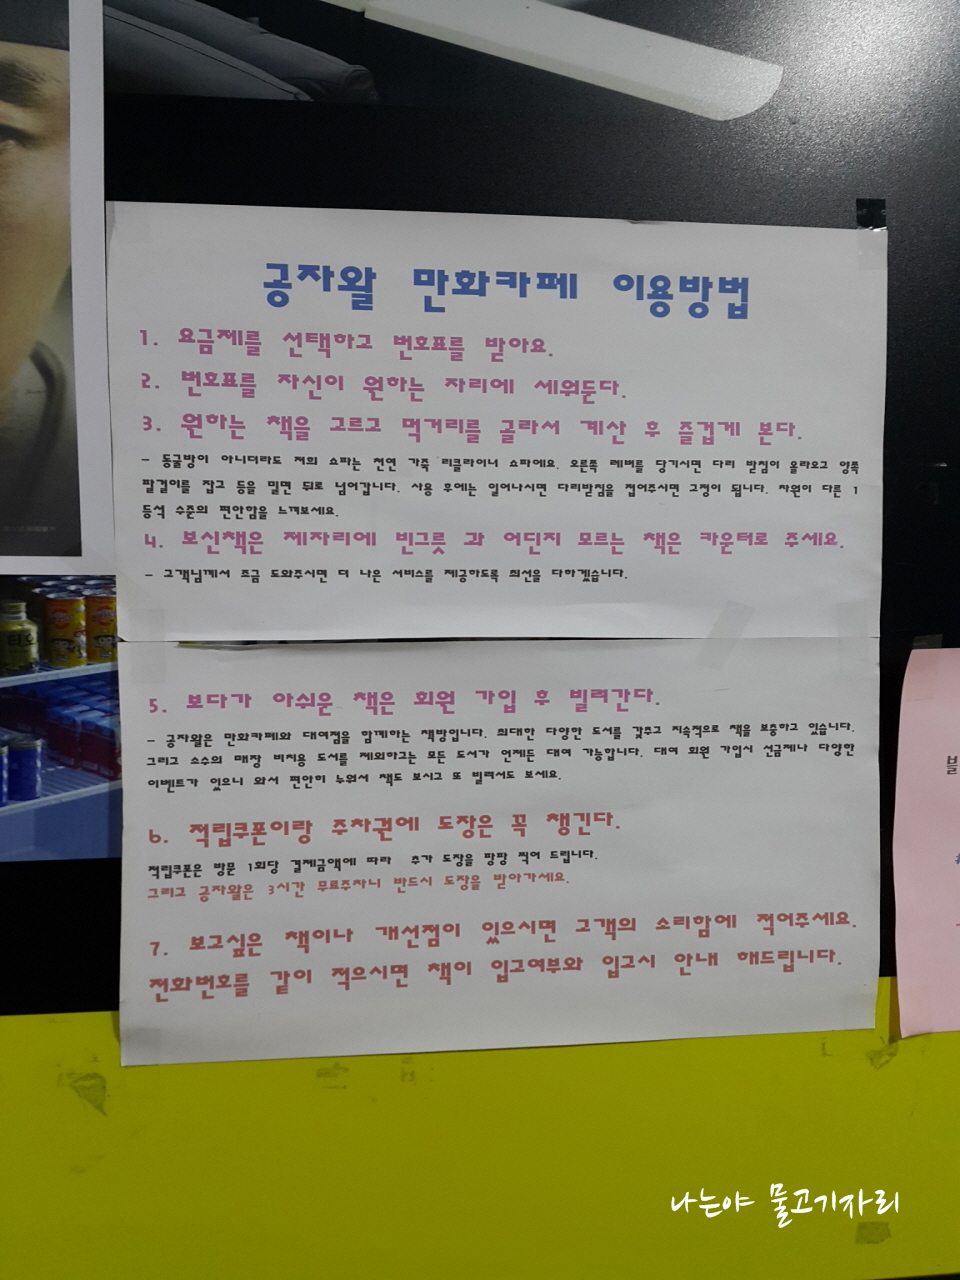 공자왈 만화카페 이용방법
1. 요금제를 선택하고 번호표를 받아요.
2. 번호표를 자신이 원하는 자리에 세워둔다.
3. 원하는 책을 고르고 먹거리를 골라서 계산 후 즐겁게 본다.
- 동굴방이 아니더라도 저희 쇼파는 천연 가죽 리클라이너 쇼파에요. 오른쪽 레버를 당기시면 다리 받침이 올라오고 양쪽
팔걸이를 잡고 등을 밀면 뒤로 넘어갑니다. 사용 후에는 일어나시면 다리받침을 접어주시면 고정이 됩니다. 차원이 다른 1
등석 수준의 편안함을 느껴보세요.
4. 보신책은 제자리에 빈그릇 과 어딘지 모르는 책은 카운터로 주세요.
- 고객님께서 조금 도와주시면 더 나은 서비스를 제공하도록 최선을 다하겠습니다.
5. 보다가 아쉬운 책은 회원 가입 후 빌려간다.
- 공자왈은 만화카페와 대여점을 함께하는 책방입니다. 최대한 다양한 도서를 갖추고 지속적으로 책을 보충하고 있습니다.
그리고 소수의 매장 비치용 도서를 제외하고는 모든 도서가 언제든 대여 가능합니다. 대여 회원 가입시 선금제나 다양한
이벤트가 있으니 와서 편안히 누워서 책도 보시고 또 빌려서도 보세요.
6. 적립쿠폰이랑 주차권에 도장은 꼭 챙긴다.
적립쿠폰은 방문 1회당 결제금액에 따라 추가 도장을 팡팡 찍어 드립니다.
그리고 공자왈은 3시간 무료주차니 반드시 도장을 받아가세요.
7. 보고싶은 책이나 개선점이 있으시면 고객의 소리함에 적어주세요.
전화번호를 같이 적으시면 책이 입고여부와 입고시 안내 해드립니다.
나는야 물고기자리